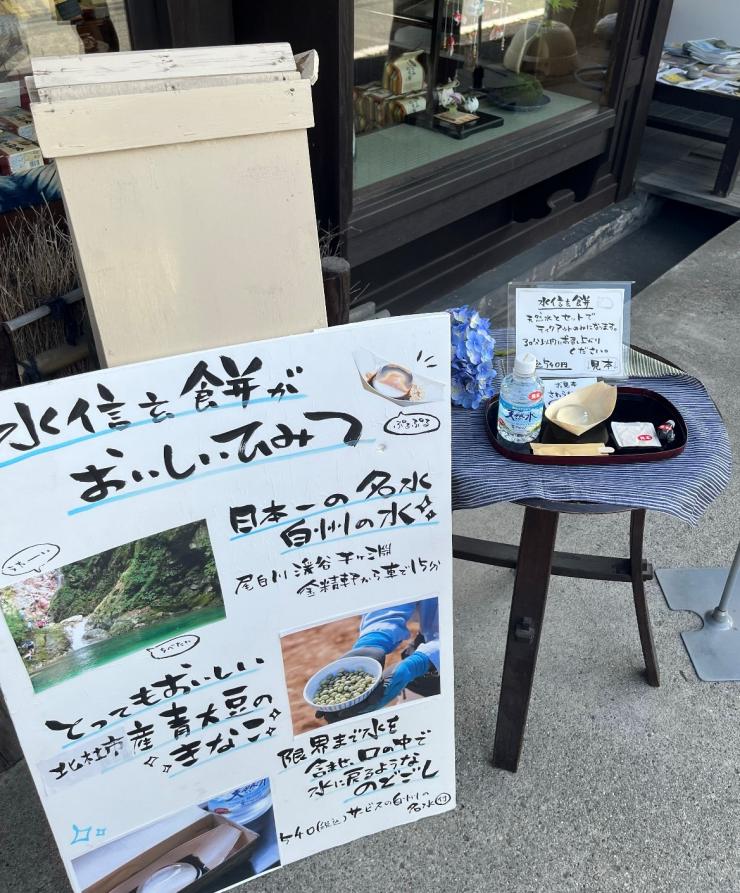 水信玄餅が
おいしいひみつ
ぷるぷる
日本一の名水
白州の水
尾白川渓谷 千ヶ淵
金精軒から車で15分
とってもおいしい
北杜市産青大豆の
きなこ
限界まで水を
含ませ、口の中で
水に戻るような
のどごし
540(税込)サービスの白州の
名水付
水信玄餅
天然水とセットで
テイクアウトのみになります。
30分以内にお召し上がり
ください。
540円
見本
お見本
天然水